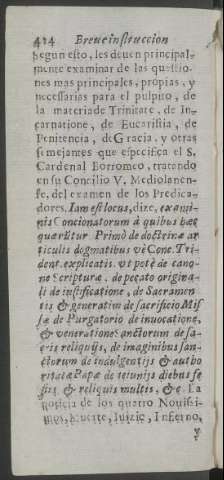 414 Breue instruccion
Segun esto, les deuen principal-
mente examinar de las questio-
nes mas principales, propias, y
necessarias para el pulpito, de
la materia de Trinitate, de In-
carnatione, de Eucaristia, de
Penitencia, de Gracia, y otras
semejantes que especifica el S.
Cardenal Borromeo, tratendo
en su Concilio V. Mediolanen-
se, del examen de los Predica-
dores. Iam est locus, dize, exami-
nis Concionatorum à quibus hæc
quærẽtur Primò de doctrinæ ar
ticulis dogmatibus vè Conc. Tri-
dent. explicatis. vt petè de cano-
ne Scripturæ, de pecato origina-
li de iustificatione, de Sacramen-
tis & generatim de sacrificio Mis
sæ de Purgatorio de inuocatione,
& veneratione Sanctorum de sa-
cris reliquijs, de imaginibus San-
ctorum de indulgentijs & autho
ritate Papæ de ieiunijs diebus fe
stis, & reliquis multis, &c. La
noticia de los quatro Nouissi-
mos, Muerte, Iuizio, Infierno,
y